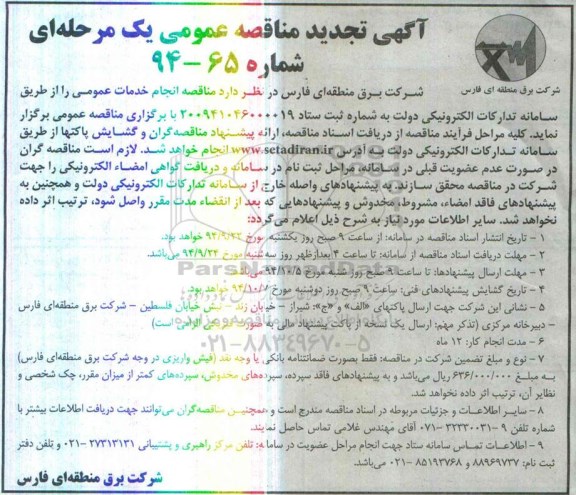 آگهی تجدید مناقصه عمومی یک مرحله‌ای
شماره ۶۵-۹۴
شرکت برق منطقه ای فارس
شرکت برق منطقه‌ای فارس در نظر دارد مناقصه انجام خدمات عمومی را از طریق
سامانه تدارکات الکترونیکی دولت به شماره ثبت ستاد ۲۰۰۹۴۱۰۴۶۰۰۰۰۱۹ با برگزاری مناقصه عمومی برگزار
نماید. کلیه مراحل فرآیند مناقصه از دریافت اسناد مناقصه، ارائه پیشنهاد مناقصه‌گران و گشایش پاکتها از طریق
سامانه تدارکات الکترونیکی دولت به آدرس www.setadiran.ir انجام خواهد شد. لازم است مناقصه گران
در صورت عدم عضویت قبلی در سامانه، مراحل ثبت نام در سامانه و دریافت گواهی امضاء الکترونیکی را جهت
شرکت در مناقصه محقق سازند. به پیشنهادهای واصله خارج از سامانه تدارکات الکترونیکی دولت و همچنین به
پیشنهادهای فاقد امضاء، مشروط، مخدوش و پیشنهادهایی که بعد از انقضاء مدت مقرر واصل شود، ترتیب اثر داده
نخواهد شد. سایر اطلاعات مورد نیاز به شرح ذیل اعلام می‌گردد:
۱ - تاریخ انتشار اسناد مناقصه در سامانه: از ساعت ۹ صبح روز یکشنبه مورخ ۹۴/۹/۲۲ خواهد بود.
۲ - مهلت دریافت اسناد مناقصه از سامانه: تا ساعت ۴ بعدازظهر روز سه شنبه مورخ ۹۴/۹/۲۴ می‌باشد.
۳ - مهلت ارسال پیشنهادها: تا ساعت ۹ صبح روز شنبه مورخ ۹۴/۱۰/۵
۴ - تاریخ گشایش پیشنهادهای فنی: ساعت ۹ صبح روز دوشنبه مورخ ۹۴/۱۰/۷ خواهد بود.
۵ - نشانی این شرکت جهت ارسال پاکتهای «الف» و «ج»: شیراز - خیابان زند - نبش خیابان فلسطین - شرکت برق منطقه‌ای فارس
- دبیرخانه مرکزی (تذکر مهم: ارسال یک نسخه از پاکت پیشنهاد مالی به صورت فیزیکی الزامی است)
۶ - مدت انجام کار: ۱۲ ماه
۷ - نوع و مبلغ تضمین شرکت در مناقصه: فقط بصورت ضمانتنامه بانکی یا وجه نقد (فیش واریزی در وجه شرکت برق منطقه‌ای فارس)
به مبلغ ۶۳۶/۰۰۰/۰۰۰ ریال می‌باشد و به پیشنهادهای فاقد سپرده، سپرده‌های مخدوش، سپرده‌های کمتر از میزان مقرر، چک شخصی و
نظایر آن، ترتیب اثر داده نخواهد شد.
۸ - سایر اطلاعات و جزئیات مربوطه در اسناد مناقصه مندرج است و همچنین مناقصه‌گران می‌توانند جهت دریافت اطلاعات بیشتر با
شماره تلفن ۹-۳۲۲۳۰۰۳۱-۰۷۱ آقای مهندس غلامی تماس حاصل نمایند.
۹ - اطلاعات تماس سامانه ستاد جهت انجام مراحل عضویت در سامانه: تلفن مرکز راهبری و پشتیبانی ۲۷۳۱۳۱۳۱-۰۲۱ و تلفن دفتر
ثبت نام: ۸۸۹۶۹۷۳۷ و ۸۵۱۹۳۷۶۸-۰۲۱ می‌باشد.
شرکت برق منطقه‌ای فارس
۰۲۱-۸۸۳۴۹۶۷۰-۵